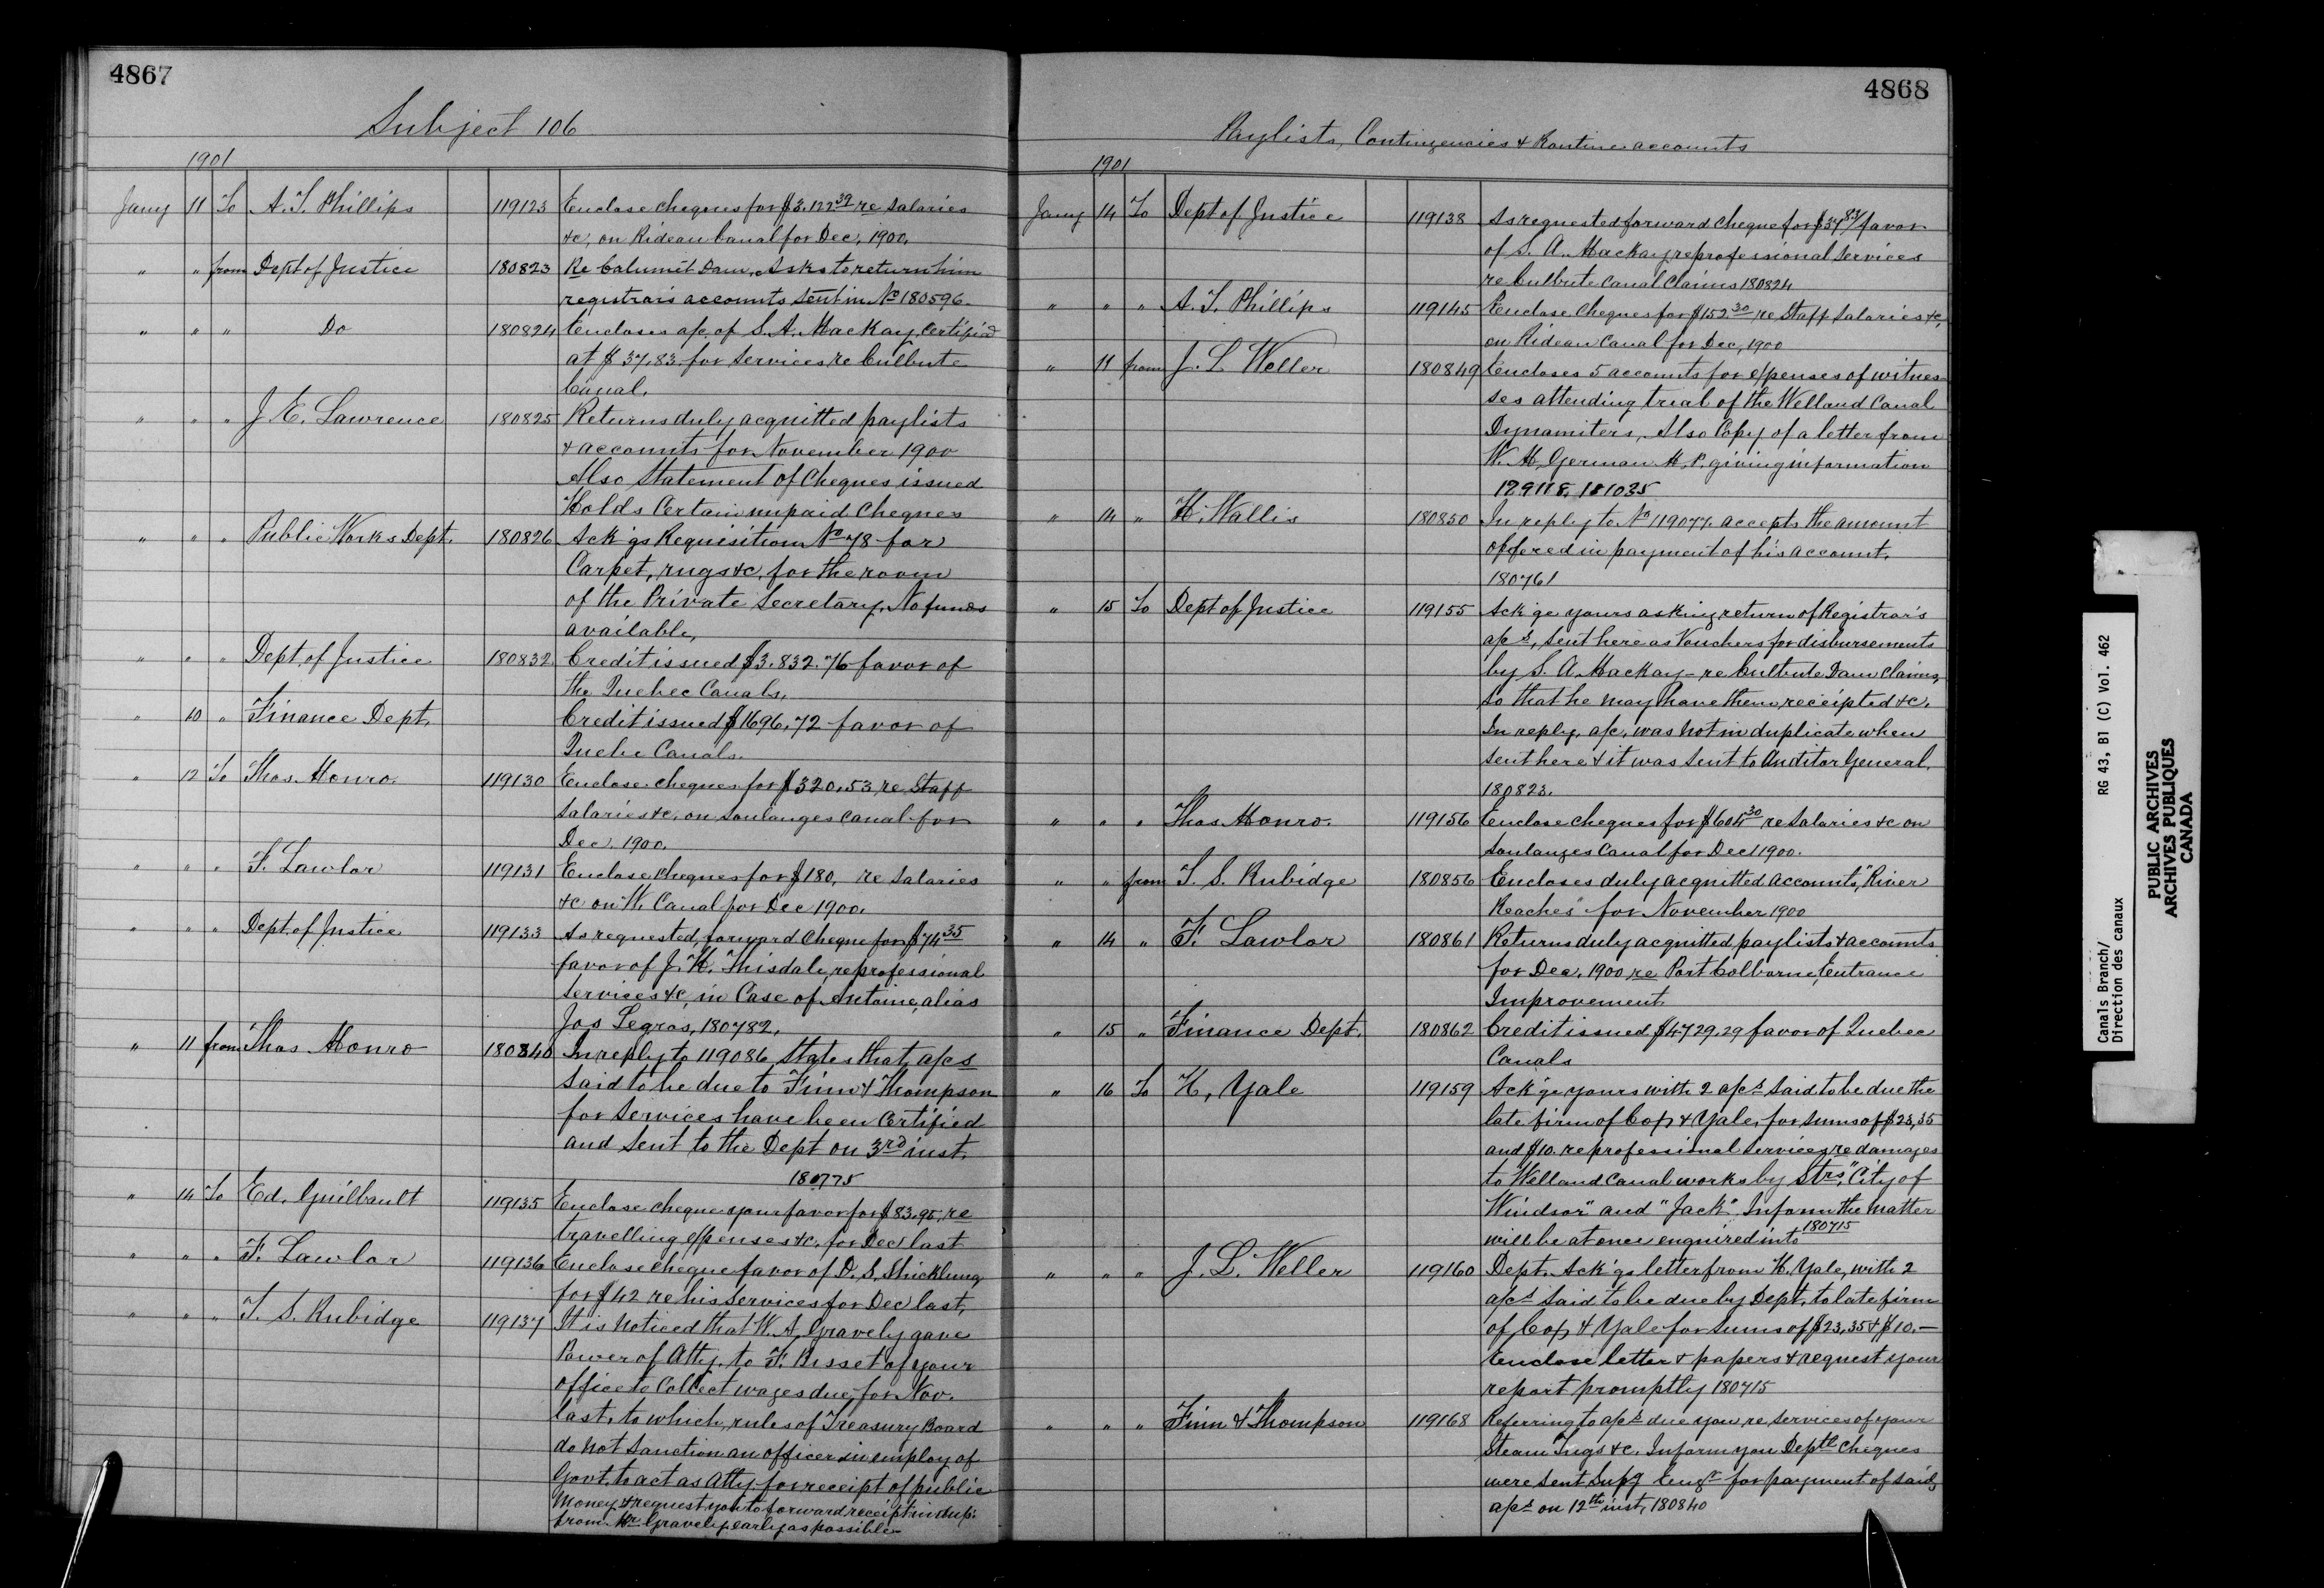 4867
Subject 106
1901
Jany 11 To A. T. Phillips 119123 Enclose cheques for $3.122 32 re salaries
&c, on Rideau Canal for Dec, 1900.
" " from Dept of Justice 180823 Re Calumet Dam, Asks to return him
registrar's accounts sent in No 180596.
" " " Do 180824 Encloses a/c of S. A. Mackay Certified
at $37.83 for services re Culbute
Canal.
" " " J. E. Lawrence 180825 Returns duly acquitted paylists
& accounts for November 1900
Also Statement of Cheques issued
Holds Certain unpaid Cheques
" " " Public Works Dept. 180826 Ack'gs Requisition No 78 for
Carpet, rugs &c, for the room
of the Private Secretary, No funds
available,
" " " Dept of Justice 180832 Credit issued $3.832.76 favor of
the Quebec Canals,
" 10 " Finance Dept. Credit issued $1696.72 favor of
Quebc Canals.
" 12 To Thos. Monro. 119130 Enclose cheques for $320.53 re Staff
Salaries &c, on Soulanges Canal for
Dec, 1900.
" " " F. Lawlor 119131 Enclose cheques for $180, re salaries
&c on W. Canal for Dec 1900.
" " " Dept. of Justice 119133 As requested, forward cheque for $74 35
favor of J. H. Thisdale, re professional
services &c, in Case of Antoine, alias
Jos Legros, 180782.
" 11 from Thos. Monro 180840 In reply to 119086 States that a/cs
said to be due to Finn & Thompson
for services have been Certified
and sent to the Dept on 3rd inst.
180775
" 14 To Ed. Guilbault 119135 Enclose cheque your favor for $83.95, re
travelling expenses &c. for Dec last
" " " F. Lawlor 119136 Enclose cheque favor of D. S. Stricklung
for $42 re his services for Dec last,
" " " T. S. Rubidge 119137 It is noticed that W. A. Gravely gave
Power of Atty. to F. Bisset of your
office to Collect wages due for Nov.
last, to which, rules of Treasury Board
do not sanction an officer in employ of
Govt. to act as Atty for receipt of public
Money, & request you to forward receipt in dup.
from Mr Gravely early as possible
4868
Paylists, Contingencies & Routine accounts
1901
Jany 14 To Dept of Justice 119138 As requested forward cheque for $37 83/ favor
of S. A. Mackay re professional services
re Culbute Canal Claims 180824
" " " A. T. Phillips 119145 Enclose cheques for $152.30 re Staff salaries &c,
on Rideau Canal for Dec, 1900
" 11 from J. L. Weller 180849 Encloses 5 accounts for expenses of witnes-
ses attending trial of the Welland Canal
Dynamiters, Also Copy of a letter from
W. M. German M.P. giving information
129118, 181035
" 14 " H. Wallis 180850 In reply to No 119077 accepts the amount
offered in payment of his account.
180761
" 15 To Dept of Justice 119155 Ack'ge yours asking return of Registrar's
a/cs, sent here as Vouchers for disbursements
by S. A. Mackay – re Culbute Dam Claims,
so that he may have them receipted &c.
In reply, a/c, was not in duplicate when
sent here & it was sent to Auditor General.
180823.
" " " Thos. Monro. 119156 Enclose cheques for $604 30 re Salaries &c on
Soulanges Canal for Dec 1900.
" " from T. S. Rubidge 180856 Encloses duly acquitted accounts, "River
Reaches" for November 1900
" 14 " F. Lawlor 180861 Returns duly acquitted paylists & accounts
for Dec, 1900 re Port Colborne, Entrance
Improvement
" 15 " Finance Dept. 180862 Credit issued $4729.29 favor of Quebec
Canals
" 16 To H. Yale 119159 Ack'ge yours with 2 a/cs said to be due the
late firm of Cox & Yale, for sums of $23.35
and $10. re professional services re damages
to Welland Canal works by Strs "City of
Windsor" and "Jack" Inform the matter
will be at once enquired into 180715
" " " J. L. Weller 119160 Dept. Ack'gs letter from H. Yale, with 2
a/cs said to be due by Dept. to late firm
of Cox & Yale for sums of $23.35 & $10.—
Enclose letter & papers & request your
report promptly 180715
" " " Finn & Thompson 119168 Referring to a/cs due you re services of your
Steam Tugs &c. Inform you Deptl cheques
were sent Supg Engr for payment of said
a/cs on 12th inst, 180840
Canals Branch/ RG 43, B1 (C) Vol. 462
Direction des canaux
PUBLIC ARCHIVES
ARCHIVES PUBLIQUES
CANADA